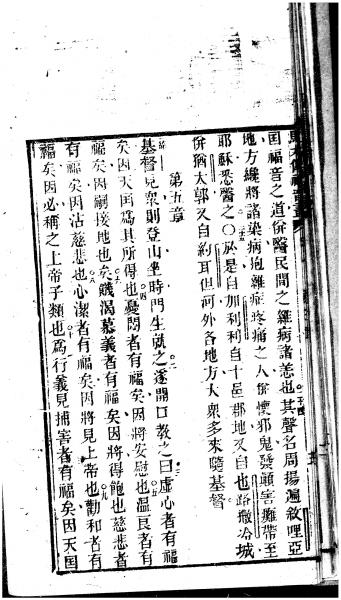 囯福音之道併醫民間之雜病諸恙也其聲名周揚遍敘哩亞
地方纔將諸染病抱雜症疼痛之人併懷邪鬼發顛害癱帶至
耶穌悉醫之〇於是自加利利自十邑郡地又自也路撒冷城
併猶大郭又自約耳但河外各地方大衆多來隨基督
第五章
基督見衆則登山坐時門生就之遂開口教之曰虛心者有福
矣因天囯爲其所得也憂悶者有福矣因將安慰也温良者有
福矣因嗣接地也矣饑渴慕義者有福矣因將得飽也慈悲者
有福矣因沾慈悲也心潔者有福矣因將見上帝也勸和者有
福矣因必稱之上帝子類也爲行義見捕害者有福矣因天囯